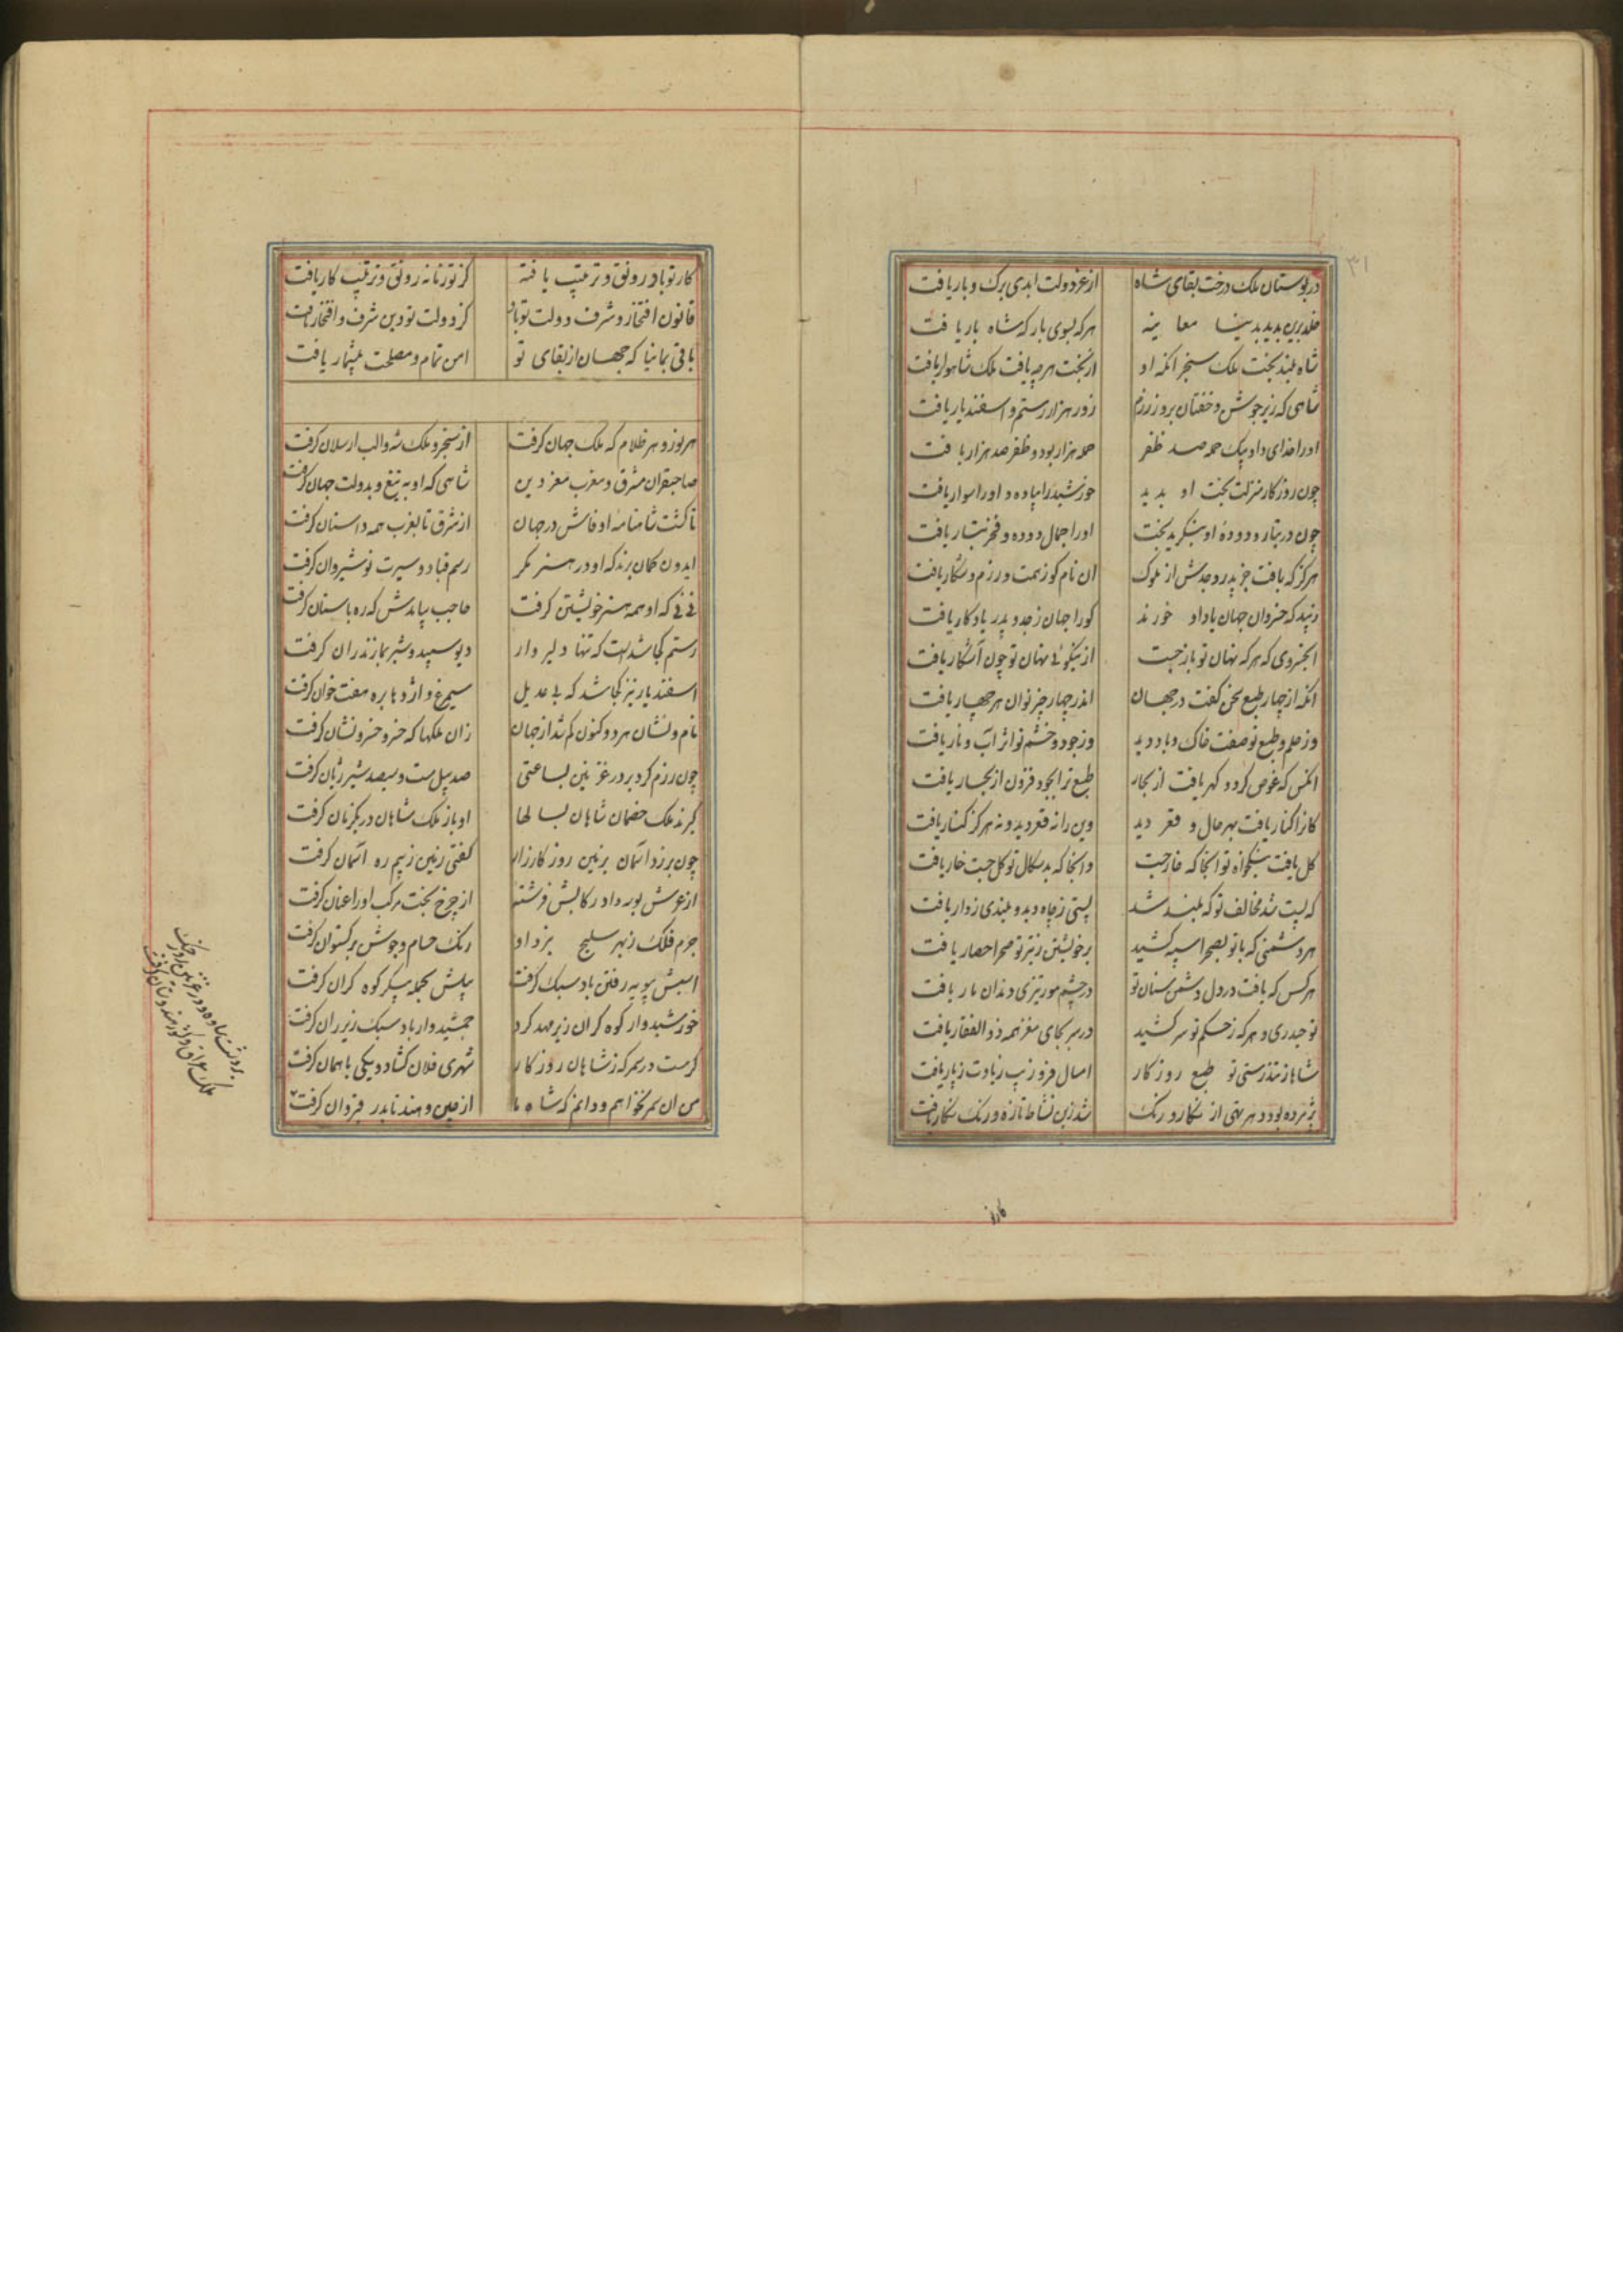 ۳۱
در بوستان ملک درخت بقای شاه از عز دولت ابدی برک و بار یافت
خلد برین بدید بدنیا معاینه هر که بسوی بارکه شاه بار یافت
شاه بلند بخت ملک سنجر انکه او از بخت هرچه یافت ملک شاهوار یافت
شاهی که زیر جوشن و خفتان بروز رزم زور هزار رستم و اسفندیار یافت
او را خدای داد بیک حمله صد ظفر حمله هزار بود و ظفر صد هزار یافت
چون روزکار منزلت بخت او بدید خورشید را پیاده و او را سوار یافت
چون در تبار و دوده او بنکرید بخت او را جمال دوده و فخر تبار یافت
هرکز که یافت جز پدر و جدش از ملوک ان نام کو ز همت و رزم و شکار یافت
زیبد که خسروان جهان یاد او خورند کو را جهان ز جد و پدر یادکار یافت
ای خسروی که هر که نهان تو باز جست از نیکوئی نهان تو چون آشکار یافت
انکه از چهار طبع سخن کفت در جهان اندر چهار چیز توان هر چهار یافت
وز حلم و طبع تو صفت خاک و باد دید وز جود و خشم تو اثر آب و نار یافت
انکس که غوص کرد و کهر یافت از بحار طبع ترا بجود فزون از بحار یافت
کانرا کنار یافت بهر حال و قعر دید وین را نه قعر دید و نه هرکز کنار یافت
کل یافت نیکخواه تو انجا که خار جست و انجا که بدسکال تو کل جست خار یافت
که پست شد مخالف تو که بلند شد پستی ز چاه دید و بلندی ز دار یافت
هر دشمنی که با تو بصحرا سپه کشید بر خویشتن ز تیر تو صحرا حصار یافت
هر کس که یافت در دل دشمن سنان تو در چشم مور تیزی دندان مار یافت
تو حیدری و هر که ز حکم تو سر کشید در سر بجای مغز همه ذوالفقار یافت
شاها ز تندرستی تو طبع روزکار امسال فر و زیب زیادت ز پار یافت
پژمرده بود و هر بتی از نکار و رنک شد زین نشاط تازه و رنک نکار یافت
کار تو
کار تو باد رونق و ترتیب یافته کز تو زمانه رونق و ترتیب کار یافت
قانون افتخار و شرف دولت تو باد کز دولت تو دین شرف و افتخار یافت
باقی بمانیا که جهان از بقای تو امن تمام و مصلحت بیشمار یافت
هر نور و هر ظلام که ملک جهان کرفت از سنجر و ملک شه و الب ارسلان کرفت
صاحبقران مشرق و مغرب معز دین شاهی که او به تیغ و بدولت جهان کرفت
تا کشت شاهنامه او فاش در جهان از شرق تا بغرب همه داستان کرفت
ایدون کمان برند که او در هنر مکر رسم قباد و سیرت نوشیروان کرفت
نی نی که او همه هنر خویشتن کرفت حاجب نیایدش که ره باستان کرفت
رستم کجا شدست که تنها دلیروار دیو سپید و شیر بمازندران کرفت
اسفندیار نیز کجا شد که بی عدیل سیمرغ و اژدها بره هفت خوان کرفت
نام و نشان هر دو کنون کم شد از جهان زان ملکها که خسرو خسرونشان کرفت
چون رزم کرد بر در غزنین بساعتی صد پیل مست و سیصد شیر ژیان کرفت
کیرند ملک خصمان شاهان بسالها او باز ملک شاهان در یکزمان کرفت
چون بر زد اسمان بزمین روز کارزار کفتی زمین ز بیم ره اسمان کرفت
از عرش بوسه داد رکابش فرشته از چرخ بخت مرکب او را عنان کرفت
جرم فلک ز بهر سلیح نبرد او رنک حسام و جوشن و برکستوان کرفت
اسبش بپویه رفتن باد سبک کرفت پیلش بحمله پیکر کوه کران کرفت
خورشیدوار کوه کران زیر مهد کرد جمشیدوار باد سبک زیر ران کرفت
کر هست در سمر که ز شاهان روزکار شهری فلان کشاد و یکی باهمان کرفت
من ان سمر نخواهم و دانم که شاه ما از چین و هند تا بدر قیروان کرفت
بر در غزنین روز جنک
ملک عراق و کشور هندوستان کرفت